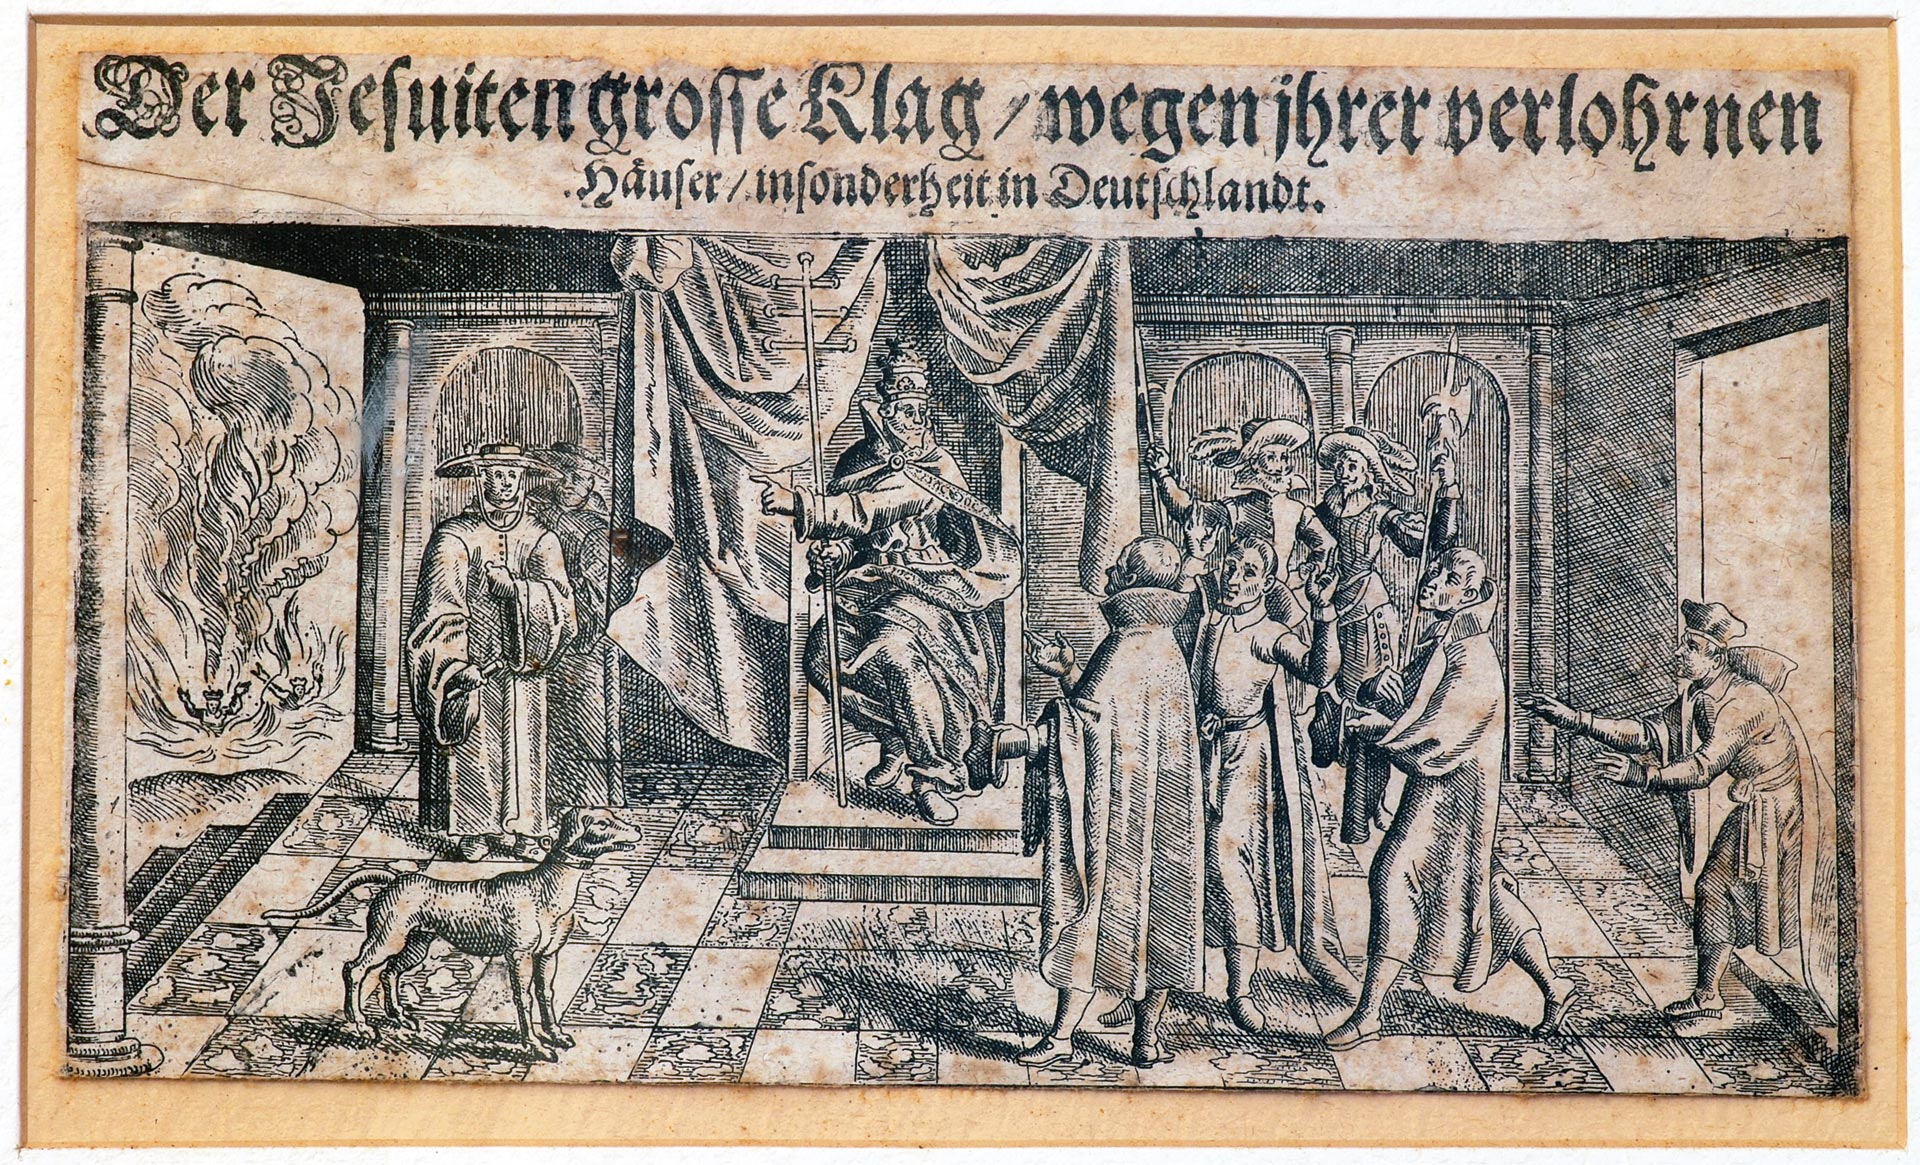 Der Jesuiten grosse Klag / wegen jhrer verlohrnen
Häuser / insonderheit in Deutschlandt.